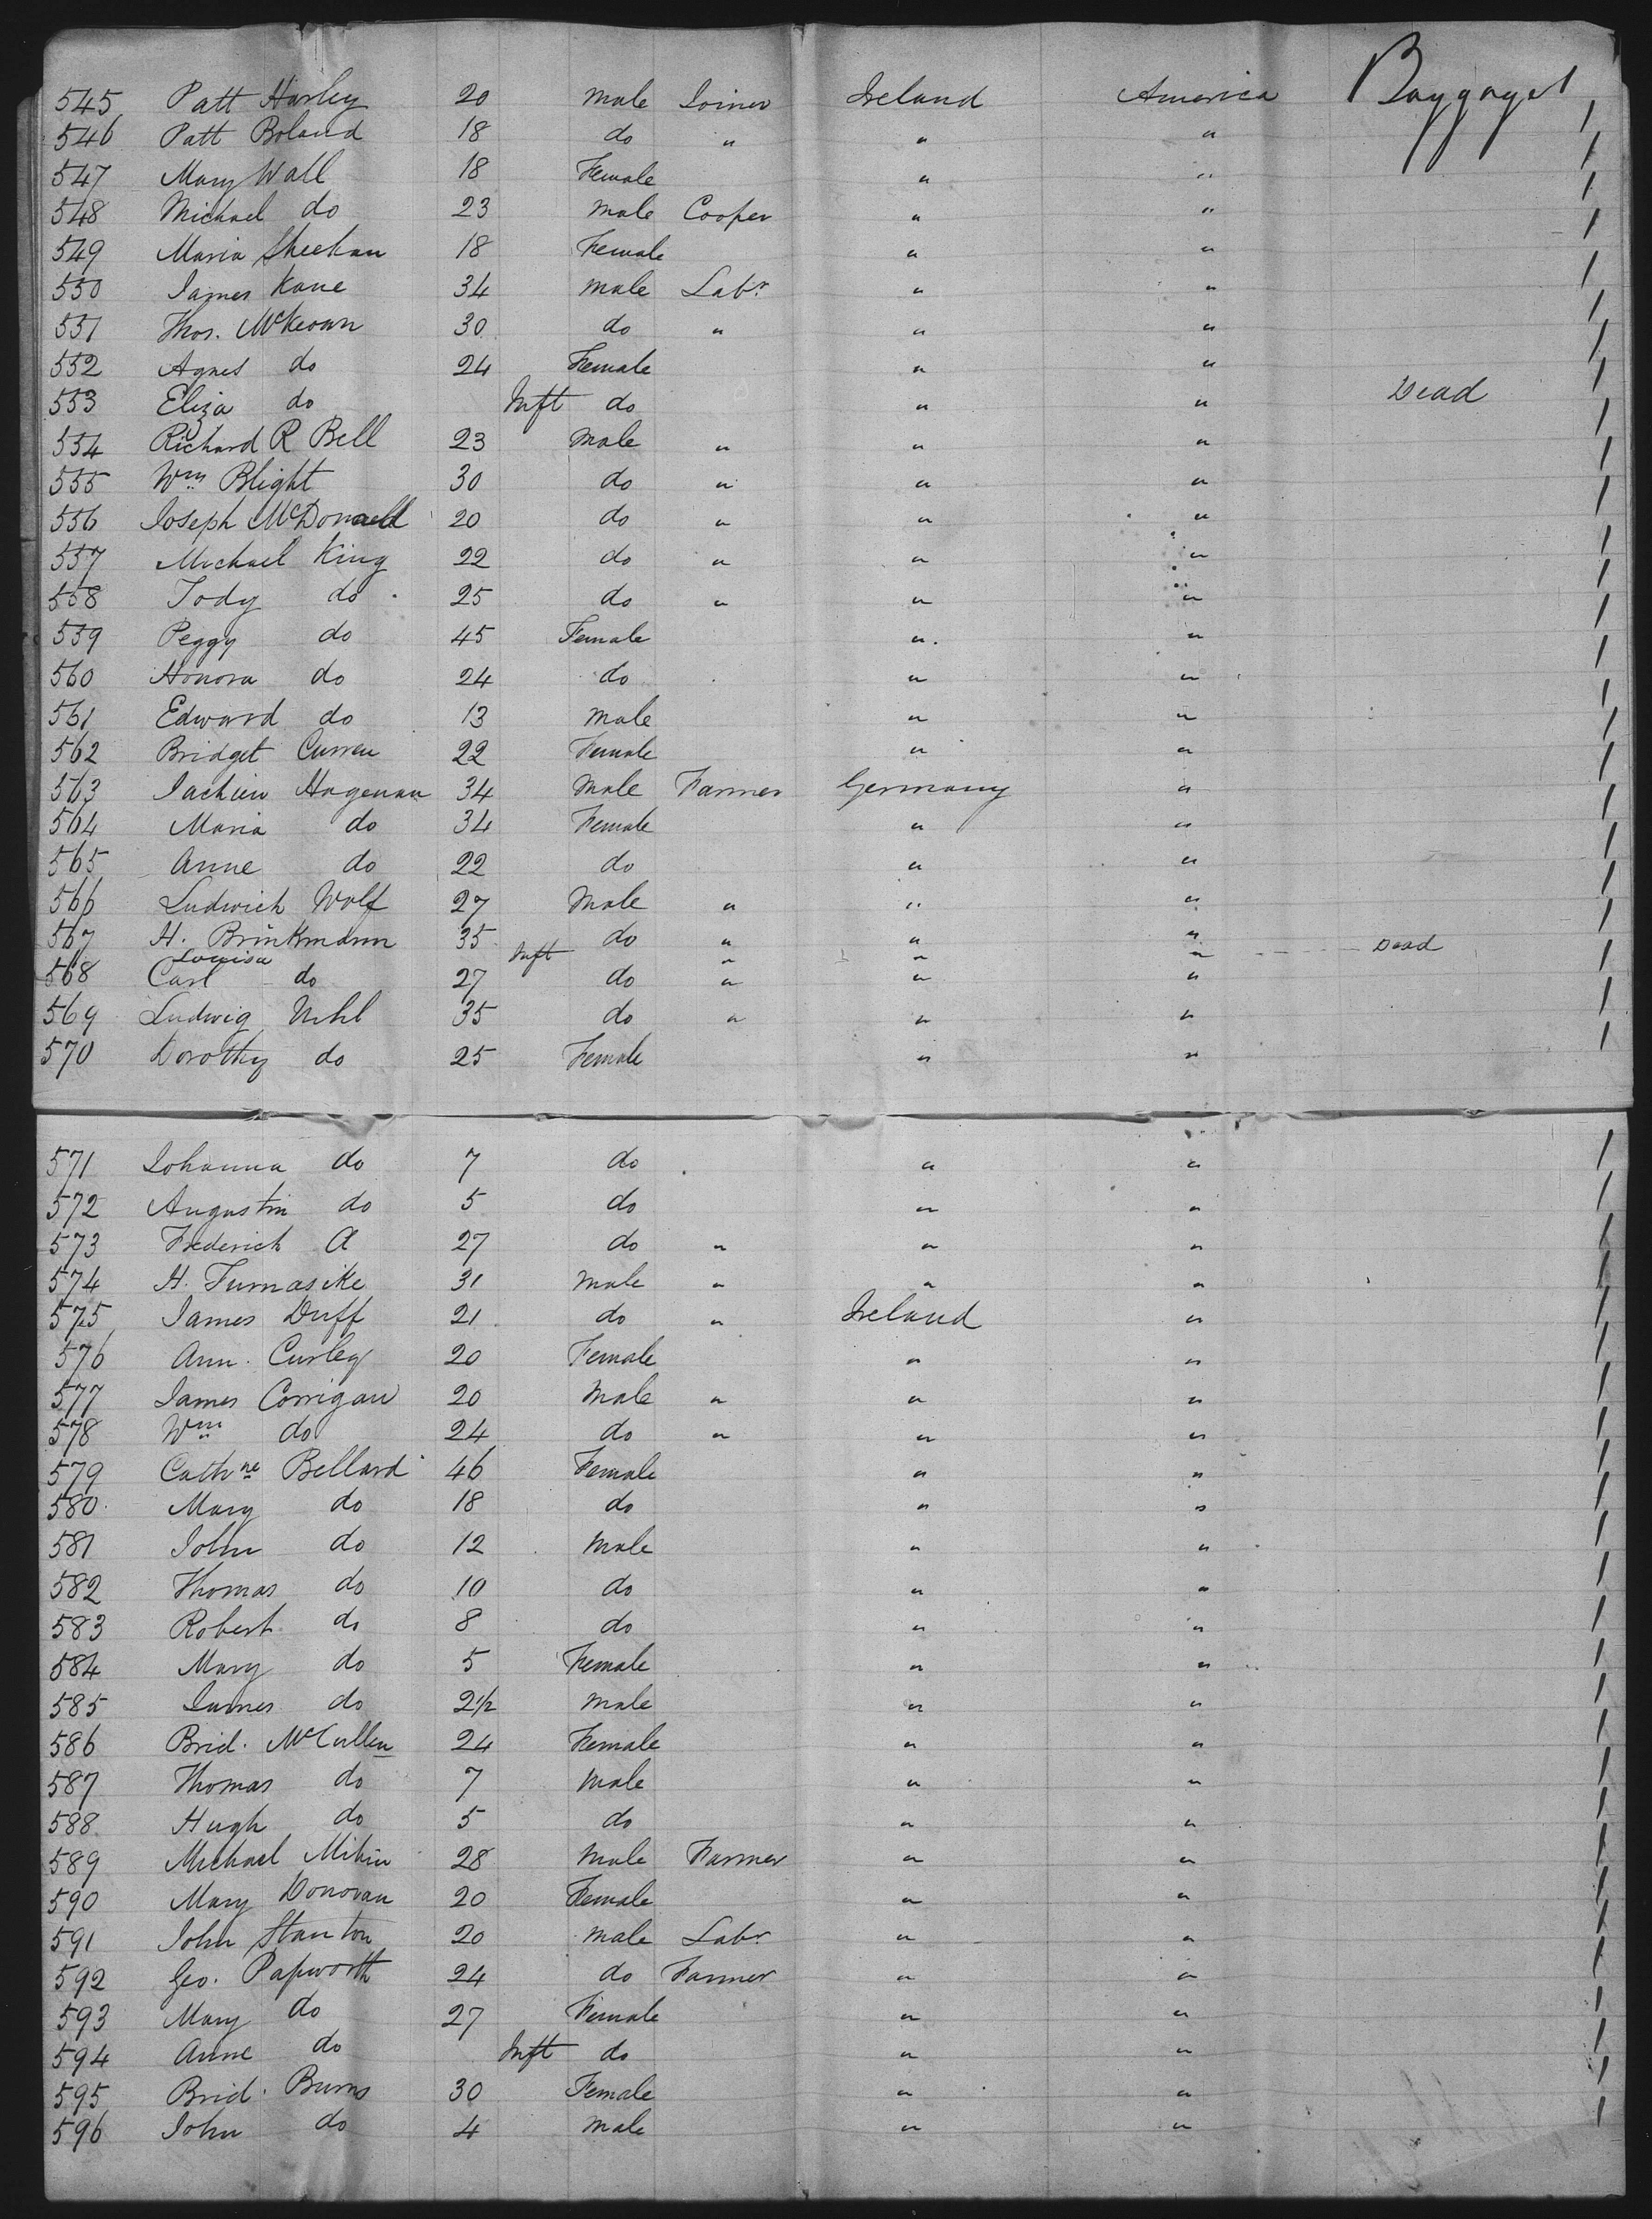 545 Patt Hurley 20 Male Joiner Ireland America Baggage 1
546 Patt Boland 18 do " " "
547 Mary Wall 18 Female " "
548 Michael do 23 Male Cooper " "
549 Maria Sheehan 18 Female " "
550 James Kane 34 Male Labr " "
551 Thos. McKeown 30 do " " "
552 Agnes do 24 Female " "
553 Eliza do Inft do " " Dead
554 Richard R Bell 23 Male " " "
555 Wm Blight 30 do " " "
556 Joseph McDonnell 20 do " " "
557 Michael King 22 do " " "
558 Tody do 25 do " " "
559 Peggy do 45 Female " "
560 Honora do 24 do " "
561 Edward do 13 Male " "
562 Bridget Curren 22 Female " "
563 Hagenau 34 Male Farmer Germany "
564 Maria do 34 Female " "
565 Anne do 22 do " "
566 Ludwich Wolf 27 Male " " "
567 H. Brinkmann 35 do " " "
Louisa Inft " " " Dead
568 Carl do 27 do " " "
569 Ludwig Uhl 35 do " " "
570 Dorothy do 25 Female " "
571 Johanna do 7 do " "
572 Augustin do 5 do " "
573 Frederich A 27 do " " "
574 H. Furnasike 31 Male " " "
575 James Duff 21 do " Ireland "
576 Ann Curley 20 Female " "
577 James Corrigan 20 Male " " "
578 Wm do 24 do " " "
579 Cathne Bellard 46 Female " "
580 Mary do 18 do " "
581 John do 12 Male " "
582 Thomas do 10 do " "
583 Robert do 8 do " "
584 Mary do 5 Female " "
585 James do 2 1/2 Male " "
586 Brid. McCullen 24 Female " "
587 Thomas do 7 Male " "
588 Hugh do 5 do " "
589 Michael 28 Male Farmer " "
590 Mary Donovan 20 Female " "
591 John Stanton 20 Male Labr " "
592 Geo. Papworth 24 do Farmer " "
593 Mary do 27 Female " "
594 Anne do Inft do " "
595 Brid. Burns 30 Female " "
596 John do 4 Male " "